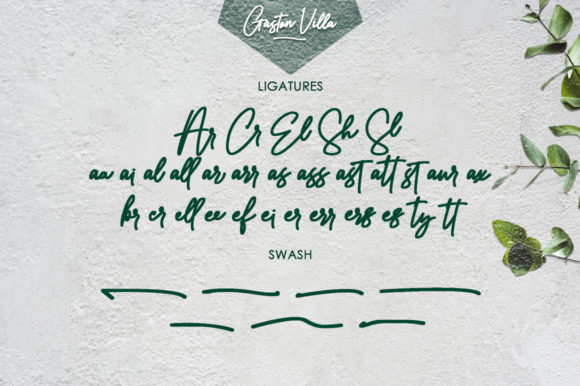 Gaston Villa
LIGATURES
Ar Cr El Sh Sl
aa ai al all ar arr as ass ast att st aur ax
br cr ell ee ef ei er err ers es ty tt
SWASH